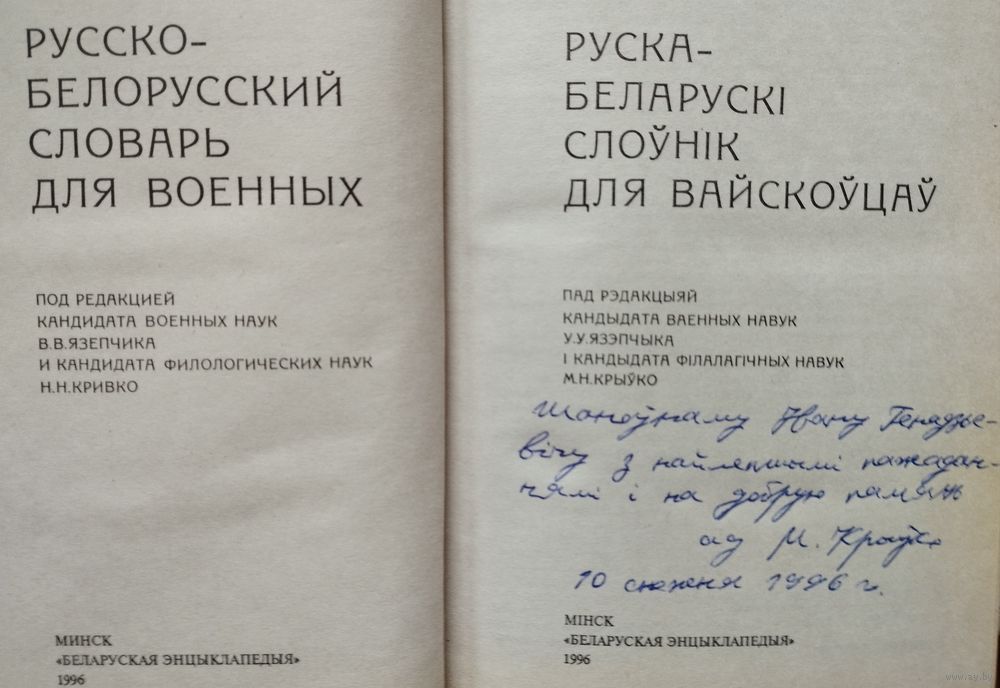 РУССКО-
БЕЛОРУССКИЙ
СЛОВАРЬ
ДЛЯ ВОЕННЫХ
ПОД РЕДАКЦИЕЙ
КАНДИДАТА ВОЕННЫХ НАУК
В.В.ЯЗЕПЧИКА
И КАНДИДАТА ФИЛОЛОГИЧЕСКИХ НАУК
Н.Н.КРИВКО
МИНСК
«БЕЛАРУСКАЯ ЭНЦЫКЛАПЕДЫЯ»
1996
РУСКА-
БЕЛАРУСКІ
СЛОЎНІК
ДЛЯ ВАЙСКОЎЦАЎ
ПАД РЭДАКЦЫЯЙ
КАНДЫДАТА ВАЕННЫХ НАВУК
У.У.ЯЗЭПЧЫКА
І КАНДЫДАТА ФІЛАЛАГІЧНЫХ НАВУК
М.Н.КРЫЎКО
Шаноўнаму Івану Генадзье-
вічу з найлепшымі пажадан-
нямі і на добрую памяць
ад М. Крыўко
10 снежня 1996 г.
МІНСК
«БЕЛАРУСКАЯ ЭНЦЫКЛАПЕДЫЯ»
1996
www.ay.by